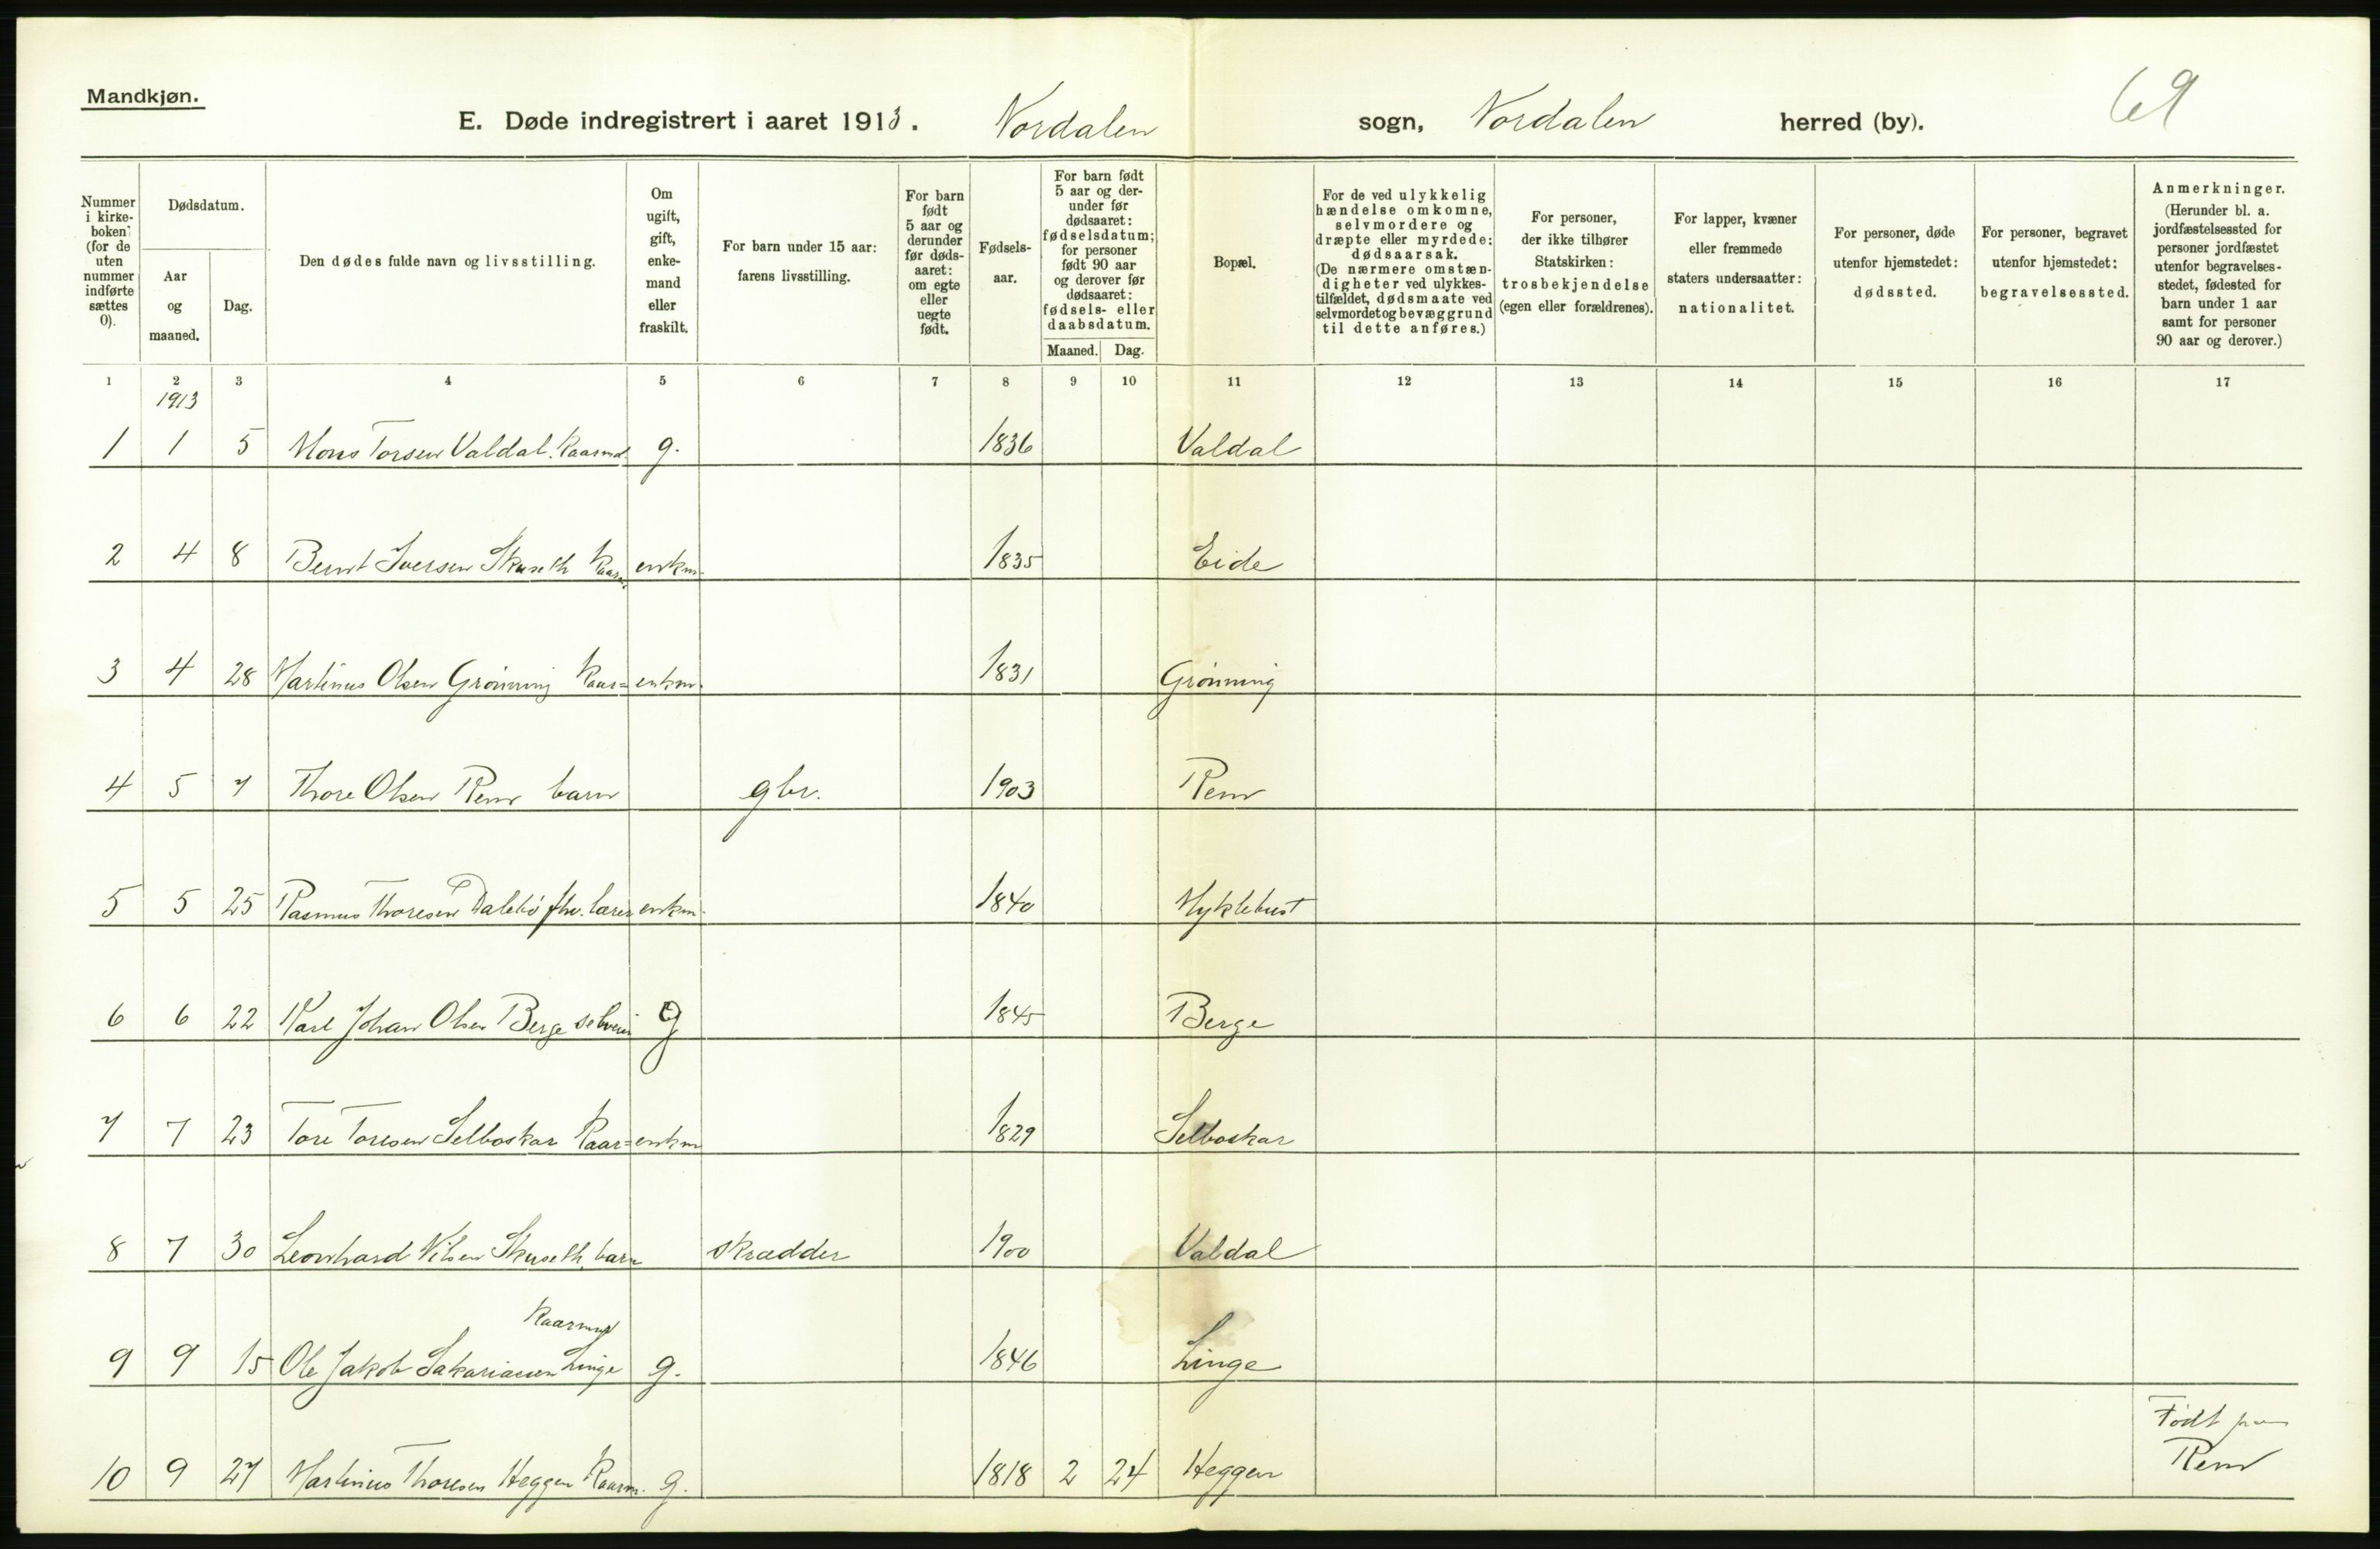 Mandkjøn.
E. Døde indregistrert i aaret 1913. Nordalen sogn, Nordalen herred (by). 69
Nummer i kirkeboken (for de uten nummer indførte sættes 0).
Dødsdatum.
Aar og maaned.
Dag.
Den dødes fulde navn og livsstilling.
Om ugift, gift, enkemand eller fraskilt.
For barn under 15 aar: farens livsstilling.
For barn født 5 aar og derunder før dødsaaret: om egte eller uegte født.
Fødselsaar.
For barn født 5 aar og derunder før dødsaaret: fødselsdatum; for personer født 90 aar og derover før dødsaaret: fødsels- eller daabsdatum.
Maaned. Dag.
Bopæl.
For de ved ulykkelig hændelse omkomne, selvmordere og dræpte eller myrdede: dødsaarsak. (De nærmere omstændigheter ved ulykkestilfældet, dødsmaate ved selvmordet og bevæggrund til dette anføres.)
For personer, der ikke tilhører Statskirken: trosbekjendelse (egen eller forældrenes).
For lapper, kvæner eller fremmede staters undersaatter: nationalitet.
For personer, døde utenfor hjemstedet: dødssted.
For personer, begravet utenfor hjemstedet: begravelsessted.
Anmerkninger. (Herunder bl. a. jordfæstelsessted for personer jordfæstet utenfor begravelsesstedet, fødested for barn under 1 aar samt for personer 90 aar og derover.)
1 2 3 4 5 6 7 8 9 10 11 12 13 14 15 16 17
1913
1 1 5 Mons Torsen Valdal. Kaarmd g. 1836 Valdal
2 4 8 Bernt Iversen Skuseth Kaarm. enkm. 1835 Eide
3 4 28 Martinus Olsen Grønning Kaar= enkm. 1831 Grønning
4 5 7 Thore Olsen Rem barn gbr. 1903 Rem
5 5 25 Rasmus Thoresen Dalebø fhv. lærer enkm. 1840 Myklebust
6 6 22 Karl Johan Olsen Berge selveier g 1845 Berge
7 7 23 Tore Toresen Selboskar Kaar= enkm 1829 Selboskar
8 7 30 Leonhard Nilsen Skuseth, barn skrædder 1900 Valdal
Kaarmd
9 9 15 Ole Jakob Sakariassen Linge g. 1846 Linge
Født paa
10 9 27 Martinus Thoresen Heggen Kaarm. g. 1818 2 24 Heggen Rem